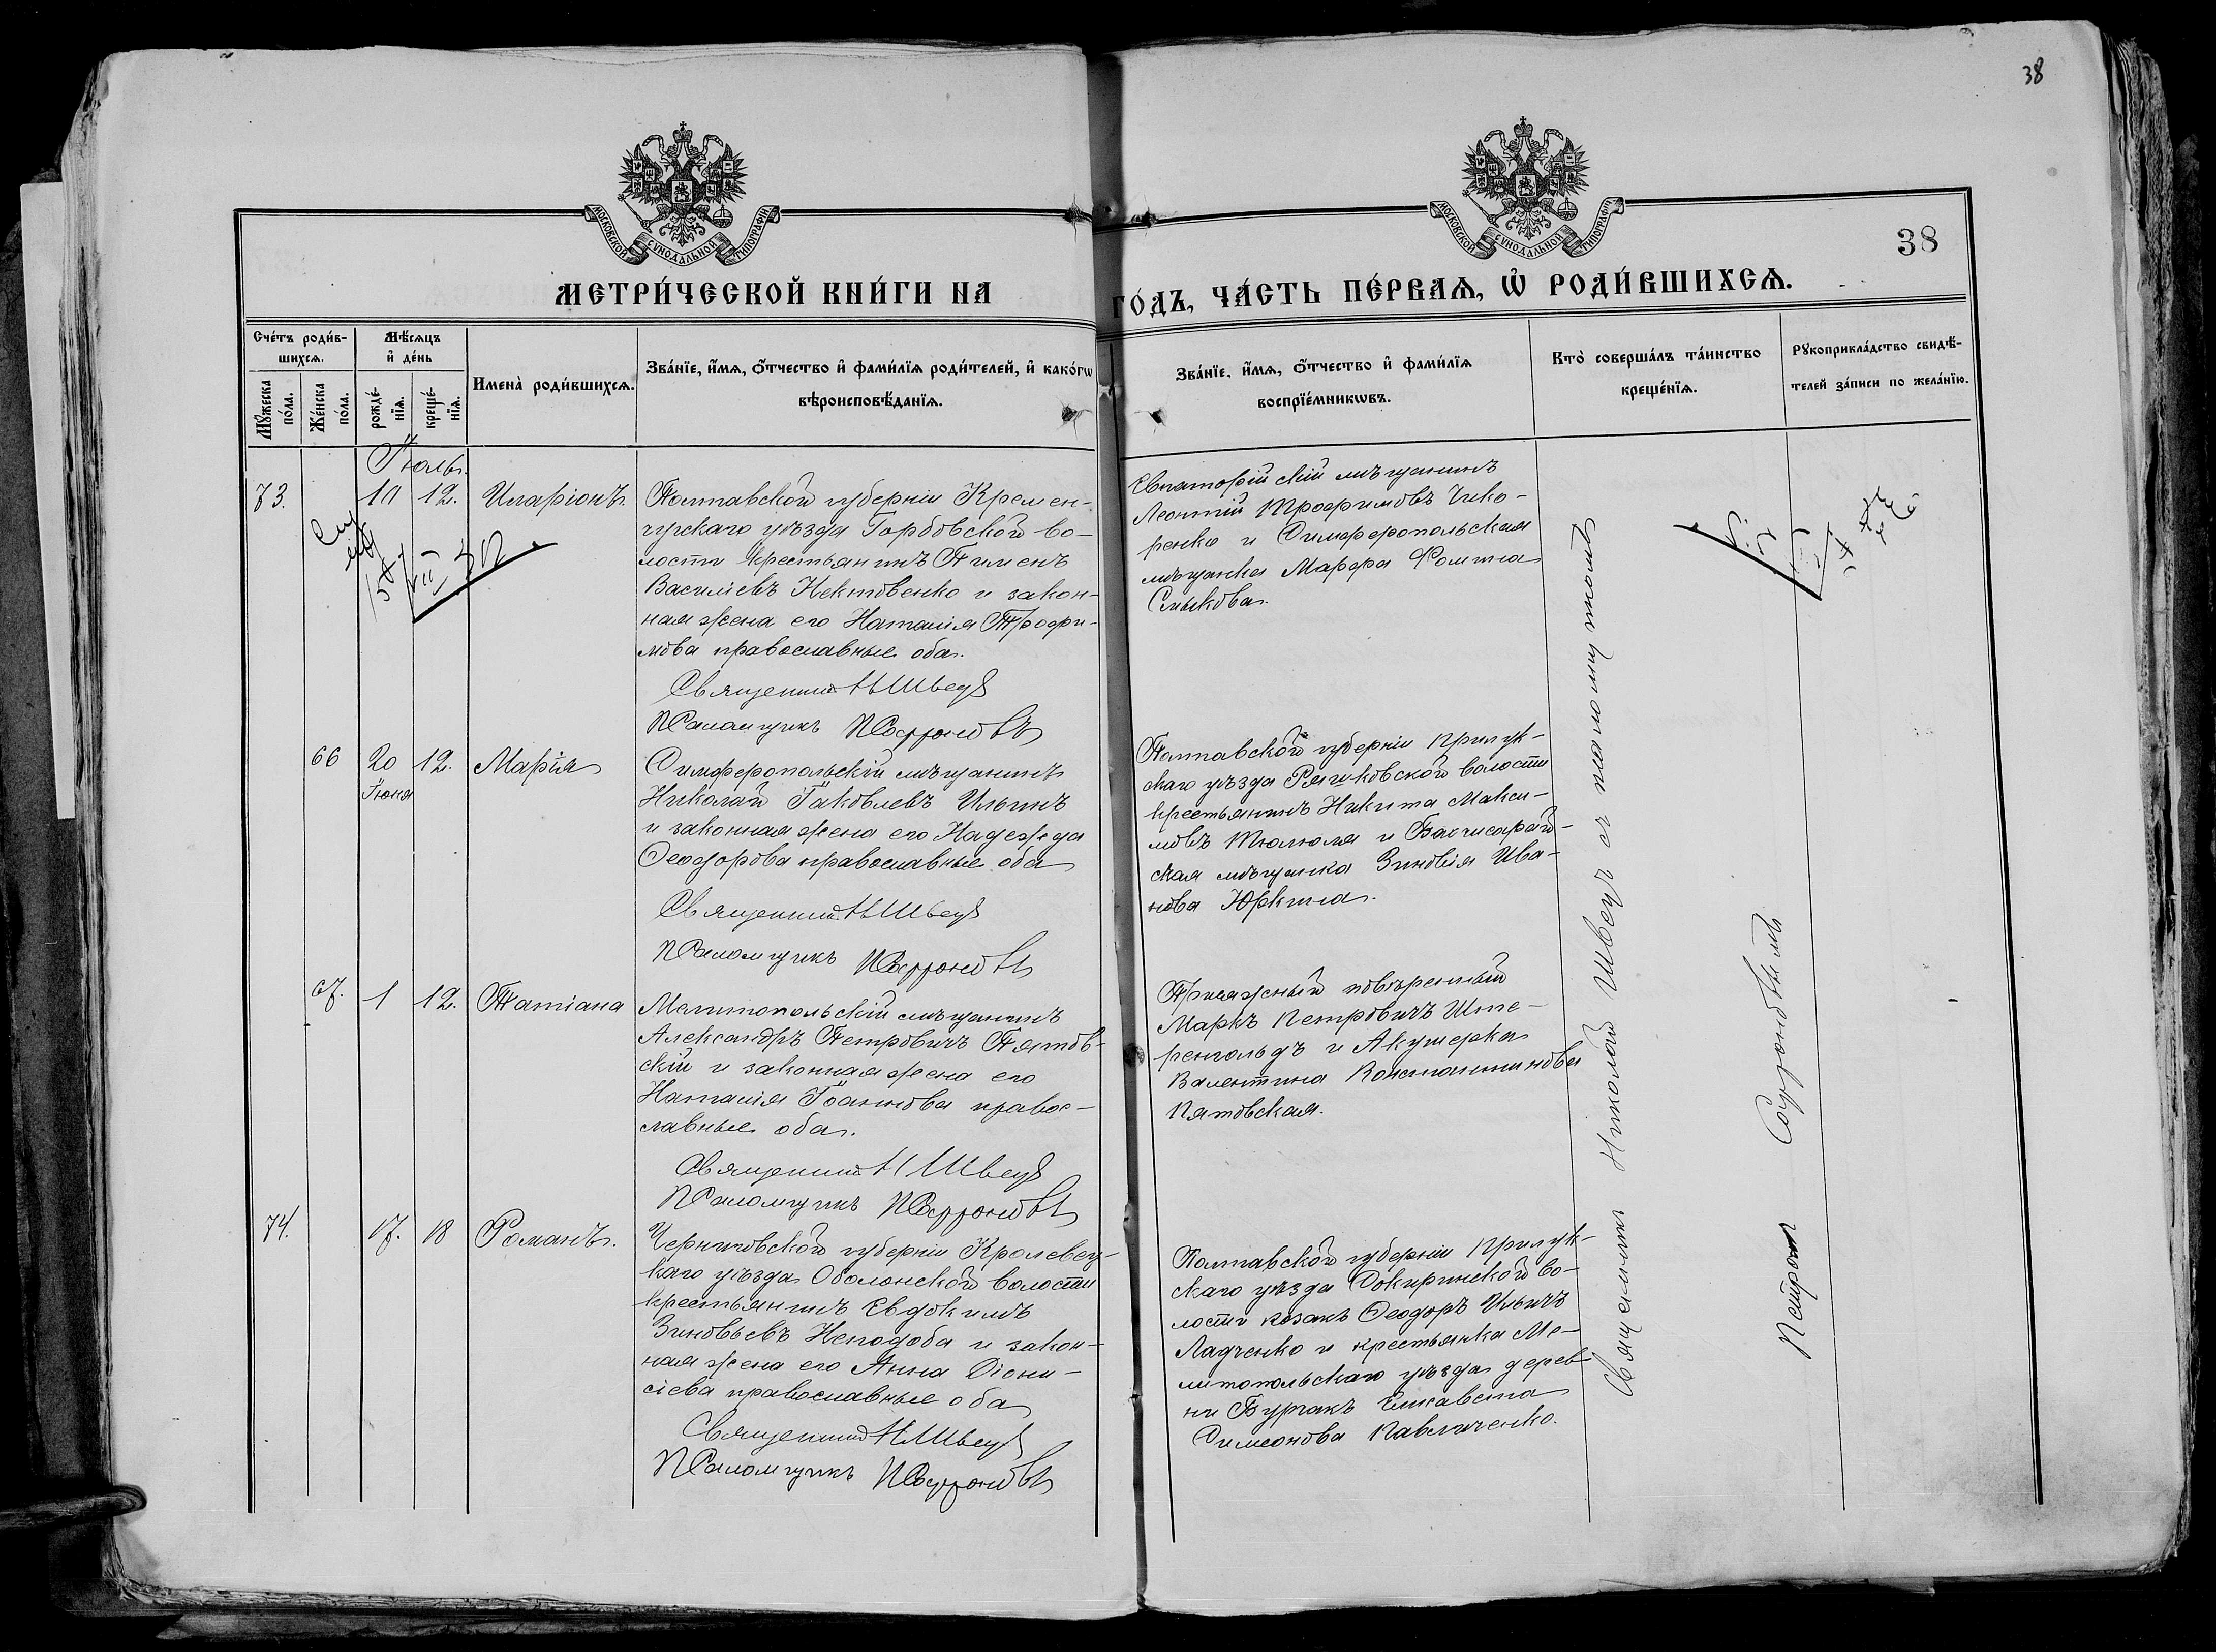 38
38
МОСКОВСКОЙ СѴНОДАЛЬНОЙ ТИПОГРАФІИ
МОСКОВСКОЙ СѴНОДАЛЬНОЙ ТИПОГРАФІИ
МЕТРИ́ЧЕСКОЙ КНИ́ГИ НА
ГО́ДЪ, ЧА́СТЬ ПЕ́РВАѦ, Ѡ҆ РОДИ́ВШИХСѦ.
Сче́тъ роди́в-
шихсѧ.
Мѣ́сѧцъ
и҆ де́нь
Мꙋ́жеска
по́ла.
Же́нска
по́ла.
рожде́-
нїѧ.
креще́-
нїѧ.
Имена̀ роди́вшихсѧ.
Зва́нїе, и҆́мѧ, ѻ҆́тчество и҆ фами́лїѧ роди́телей, и҆ како́гѡ
вѣроисповѣ́данїѧ.
Зва́нїе, и҆́мѧ, ѻ҆́тчество и҆ фами́лїѧ
воспрїе́мникѡвъ.
Кто̀ соверша́лъ та́инство
креще́нїѧ.
Рꙋкоприкла́дство свидѣ́-
телей за́писи по жела́нїю.
Іюль.
73.
11
12.
Иларіонъ.
Полтавской губерніи Кремен-
чугскаго уѣзда Горбовской во-
лости крестьянинъ Пименъ
Василіевъ Нектовенко и закон-
ная жена его Наталія Трофи-
мова православные оба.
Священникъ Н Швецъ
Псаломщикъ П Софроновъ
Евпаторійскій мѣщанинъ
Леонтій Трофимовъ Чико-
ренко и Симферопольская
мѣщанка Марфа Фомина
Смыкова.
66
20
Іюня
12.
Марія
Симферопольскій мѣщанинъ
Николай Іаковлевъ Ильинъ
и законная жена его Надежда
Ѳеодорова православные оба
Священникъ Н Швецъ
Псаломщикъ П Софроновъ
Полтавской губерніи Прилук-
скаго уѣзда Ряшковской волости
крестьянинъ Никита Макси-
мовъ Тюлюля и Бахчисарай-
ская мѣщанка Зиновія Ива-
нова Юркина.
67.
1
12.
Татіана
Мелитопольскій мѣщанинъ
Александръ Петровичъ Пятов-
скій и законная жена его
Наталія Іоаннова правос-
лавные оба.
Священникъ Н Швецъ
Псаломщикъ П Софроновъ
Присяжный повѣренный
Маркъ Петровичъ Ште-
ренгольдъ и Акушерка
Валентина Константинова
Пятовская.
74.
17.
18
Романъ.
Черниговской губерніи Кролевец-
каго уѣзда Оболонской волости
крестьянинъ Евдокимъ
Зиновьевъ Неподоба и закон-
ная жена его Анна Діони-
сіева православные оба
Священникъ Н Швецъ
Псаломщикъ П Софроновъ
Полтавской губерніи Прилук-
скаго уѣзда Сокиринской во-
лости козакъ Ѳеодоръ Ильичъ
Ладченко и крестьянка Ме-
литопольскаго уѣзда дерев-
ни Бурчакъ Елисавета
Симеонова Кавличенко.
Священникъ Николай Швецъ съ псаломщикомъ
Петромъ Софроновымъ